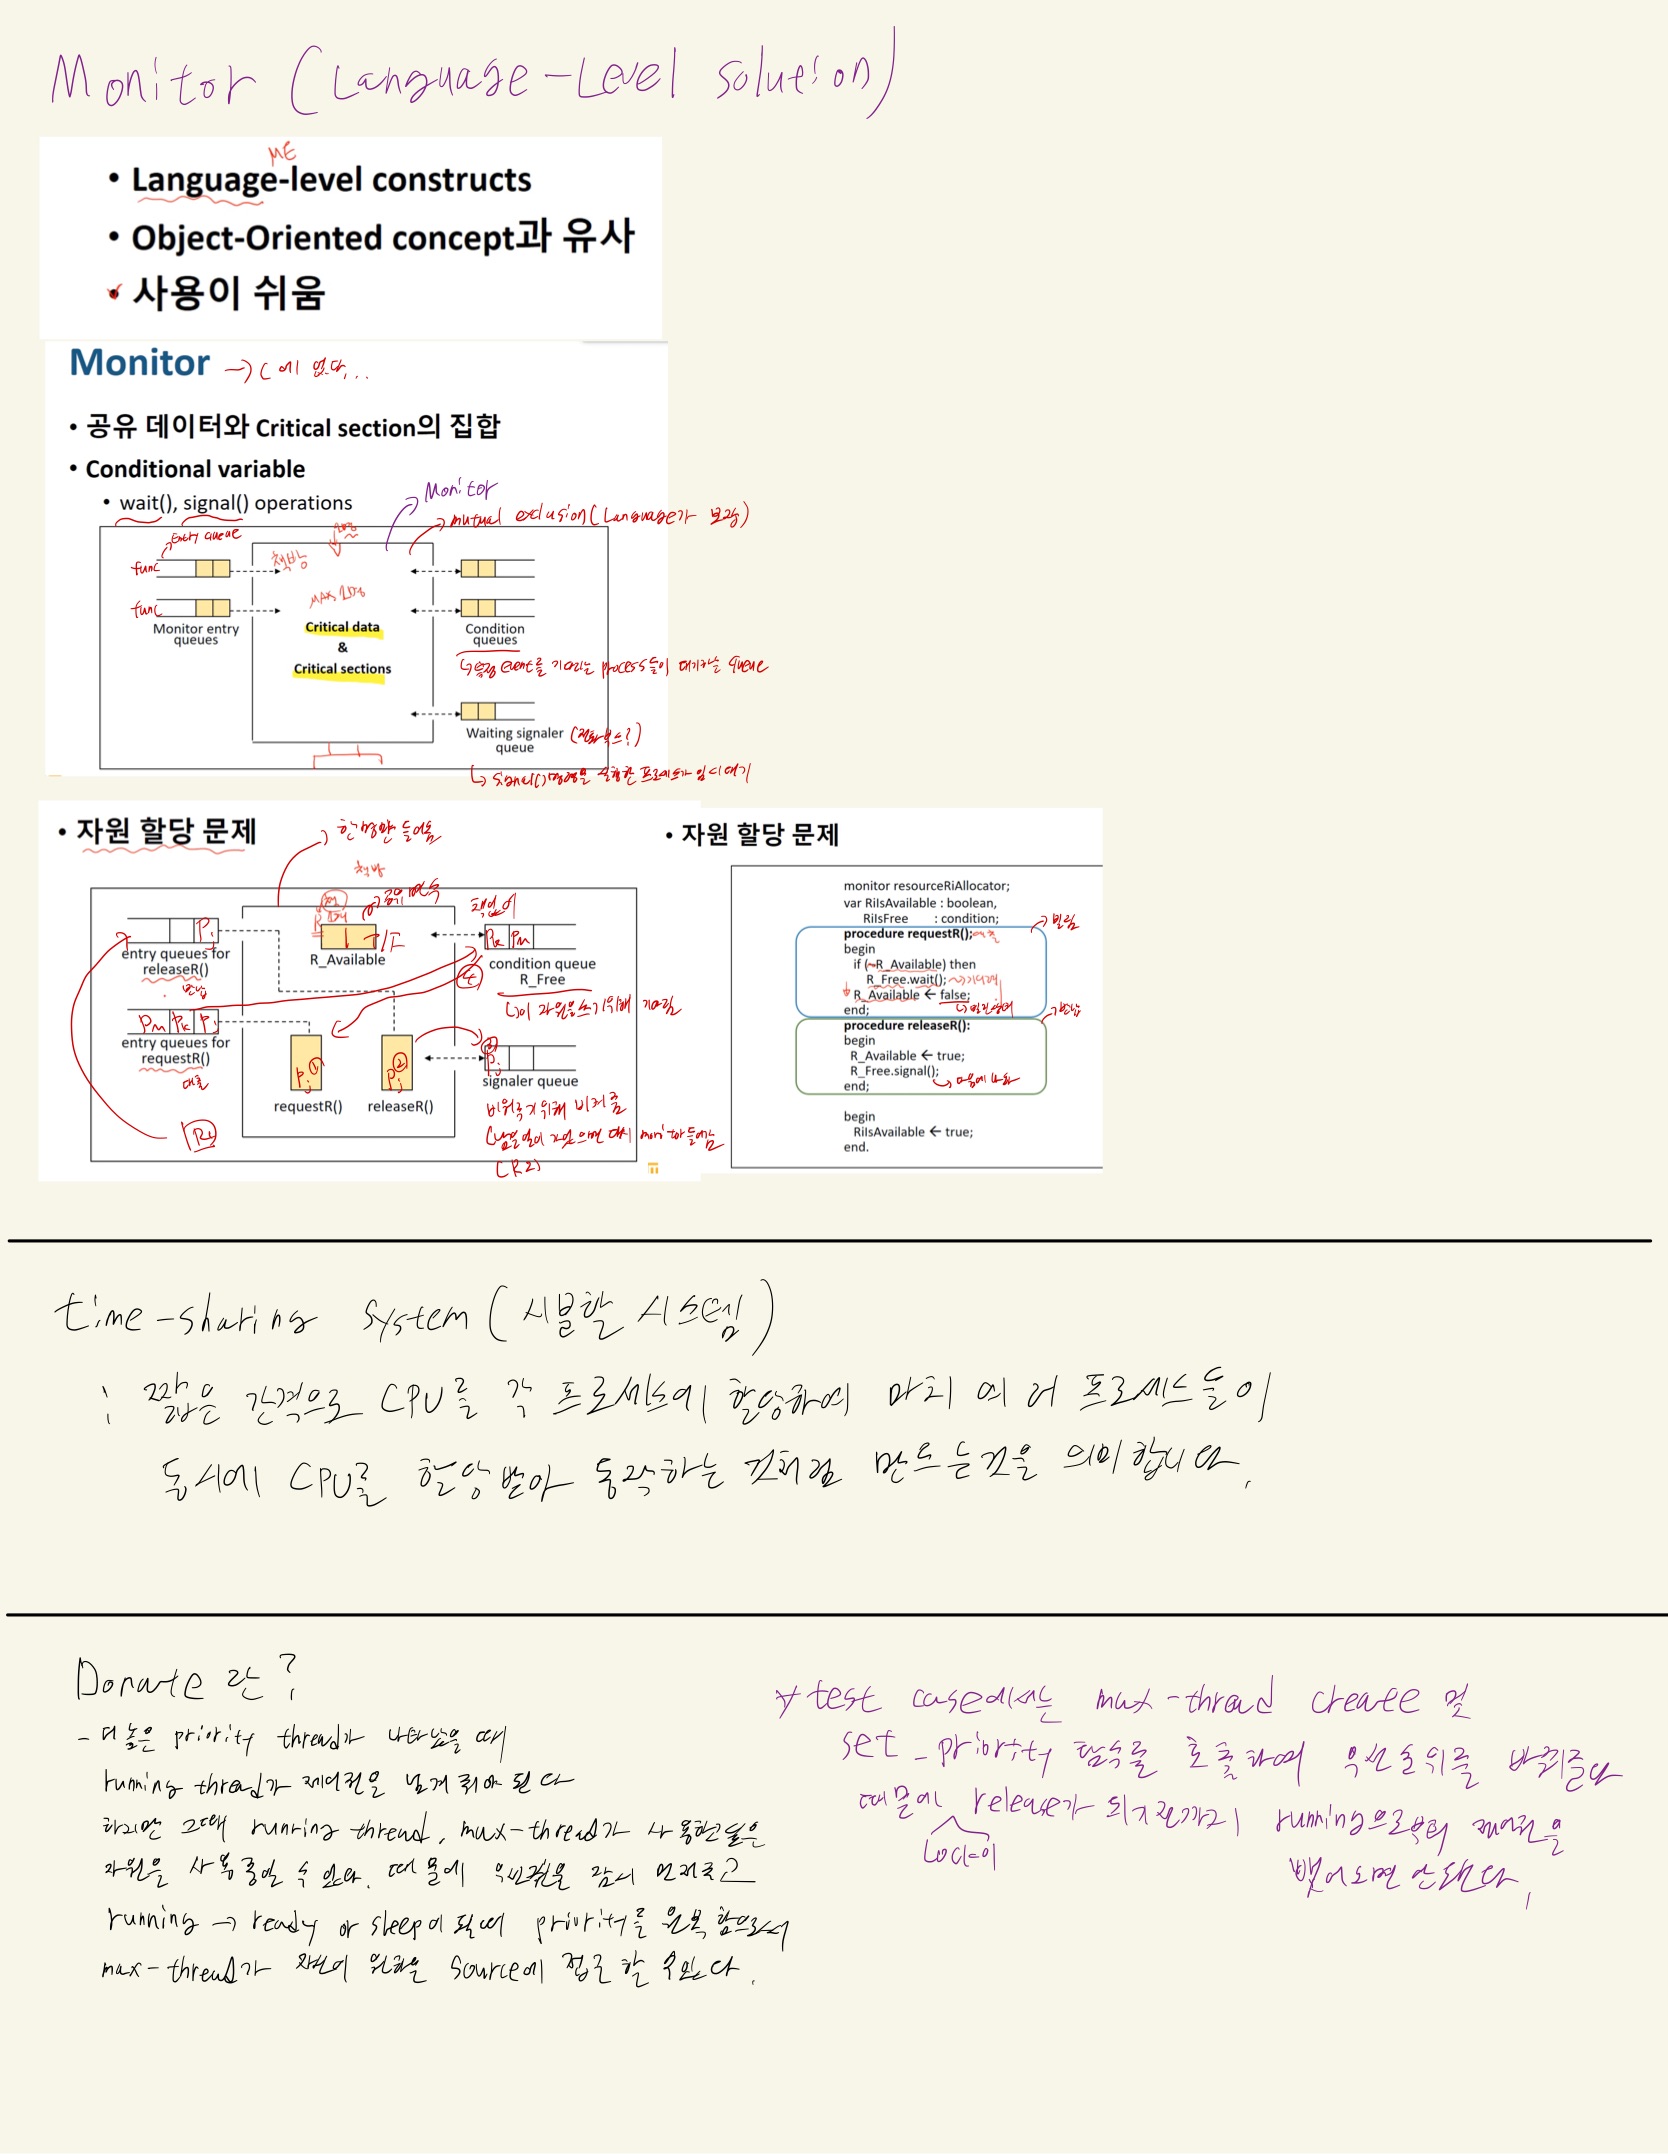 Monitor (Language-Level solution)
ME
• Language-level constructs
• Object-Oriented concept과 유사
• 사용이 쉬움
Monitor → C에 없다...
• 공유 데이터와 Critical section의 집합
• Conditional variable
• wait(), signal() operations
Monitor
mutual exclusion (Language가 보장)
Entry queue
책방
func
MAX 1명
func
Monitor entry
queues
Critical data
&
Critical sections
Condition
queues
↳ 특정 event를 기다리는 process들이 대기하는 queue
Waiting signaler
queue
↳ signal()명령을 실행한 프로세스가 임시 대기
• 자원 할당 문제
한명만 들어옴
책방
공유 변수
책없어
Pj
T/F
Pk Pm
R_Available
entry queues for
releaseR()
반납
condition queue
R_Free
④
↳ 이 자원을 쓰기위해 기다림
Pm Pk Pi
entry queues for
requestR()
대출
①
②
③
Pj
signaler queue
requestR()
releaseR()
비워주기위해 비켜줌
(남은 일이 있으면 다시 monitor 들어감
(R2)
• 자원 할당 문제
monitor resourceRiAllocator;
var RiIsAvailable : boolean,
RiIsFree : condition;
procedure requestR();
빌림
begin
if (~R_Available) then
R_Free.wait(); → 기다려
R_Available ← false;
end;
반납
procedure releaseR():
begin
R_Available ← true;
R_Free.signal();
end;
begin
RiIsAvailable ← true;
end.
time-sharing system (시분할 시스템)
: 짧은 간격으로 CPU를 각 프로세스에 할당하여 마치 여러 프로세스들이
동시에 CPU를 할당받아 동작하는 것처럼 만드는것을 의미합니다.
Donate 란?
- 더 높은 priority thread가 나타났을 때
running thread가 제어권을 넘겨 줘야 된다
하지만 그때 running thread, max-thread가 사용할
자원을 사용중일 수 있다. 때문에 우선권을 잠시 먼저주고
running → ready or sleep이 될때 priority를 원복 함으로서
max-thread가 자신이 원하는 source에 접근 할 수있다.
* test case에서는 max-thread create 및
set_priority 함수를 호출하여 우선순위를 바꿔준다
때문에 release가 되기전까지 running으로부터 제어권을
Lock이
뺏어오면 안된다.